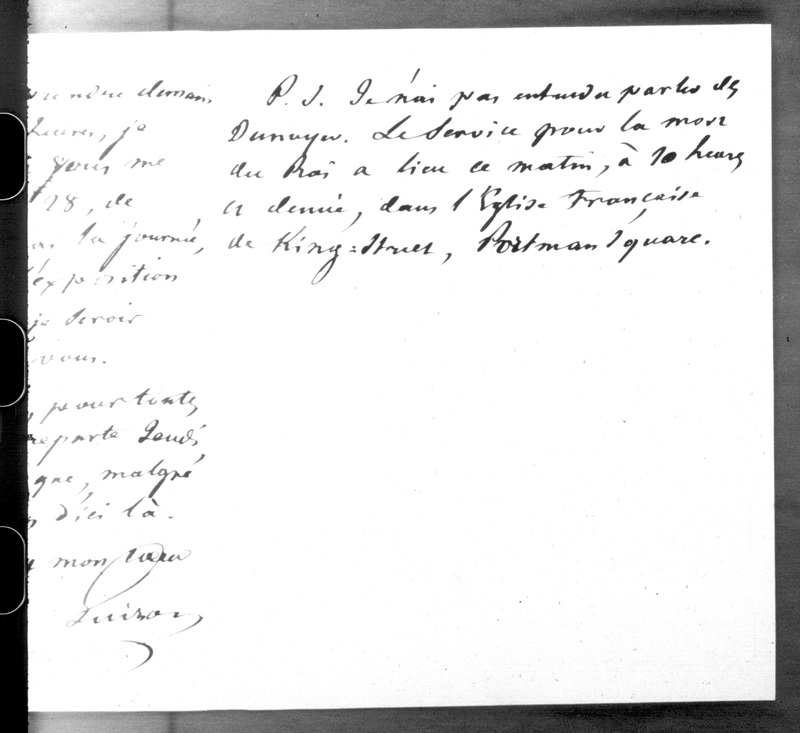 demain,
heures, je
vous me
28, de
la journée,
exposition
je serois
vous.
pour toutes
reparte Jeudi,
malgré
d'ici là.
mon
Guizot
P. S. Je n'ai pas entendu parler des
Dunoyer. Le Service pour la mort
du Roi a lieu ce matin, à 10 heures
et demie, dans l'Eglise Française
de King-Street, Portman Square.